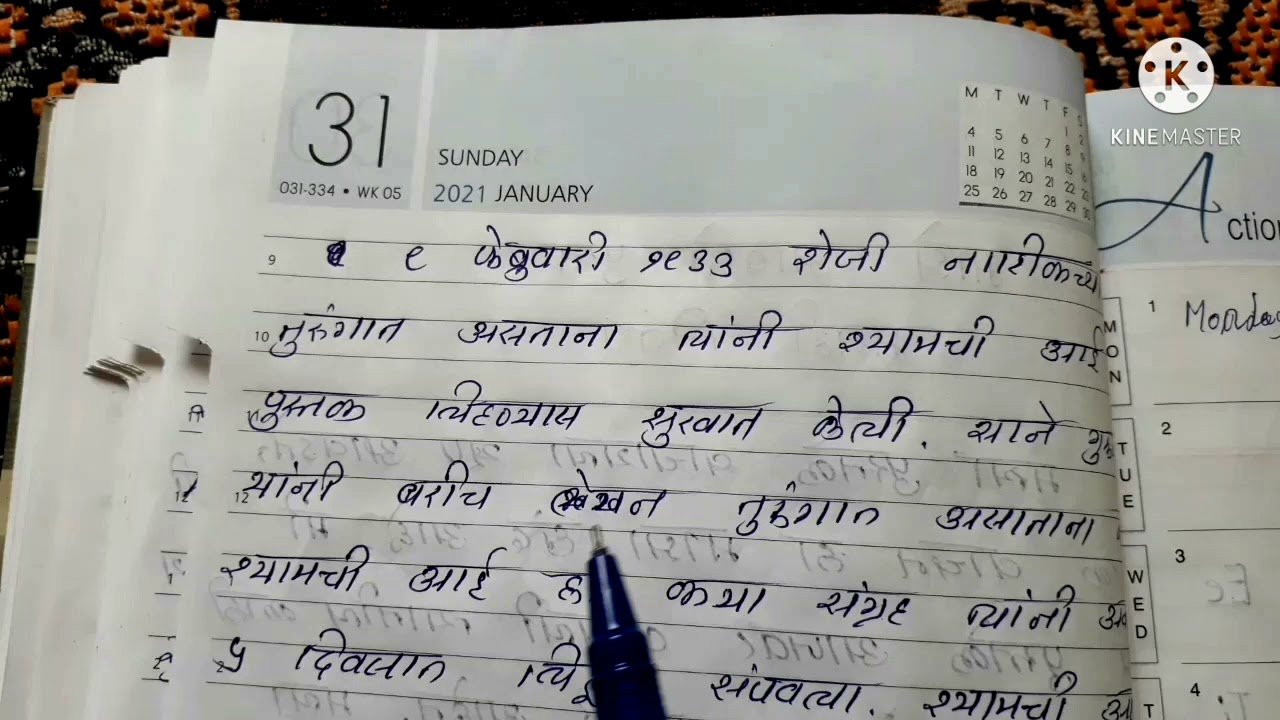 31
031-334 • WK 05
SUNDAY
2021 JANUARY
M T W T F S
1 2
4 5 6 7 8 9
11 12 13 14 15 16
18 19 20 21 22 23
25 26 27 28 29 30
KINEMASTER
Action
9 ९ फेब्रुवारी १९३३ रोजी नाशिकच्या
10 तुरुंगात असताना त्यांनी श्यामची आई
पुस्तक लिहण्यास सुरवात केली. साने गुरु
12 यांनी बरीच लेखन तुरुंगात असाताना
श्यामची आई कथा संग्रह त्यांनी
५ दिवसात संपवला. श्यामची
MON
TUE
WED
T
1 Monday
2
3
4